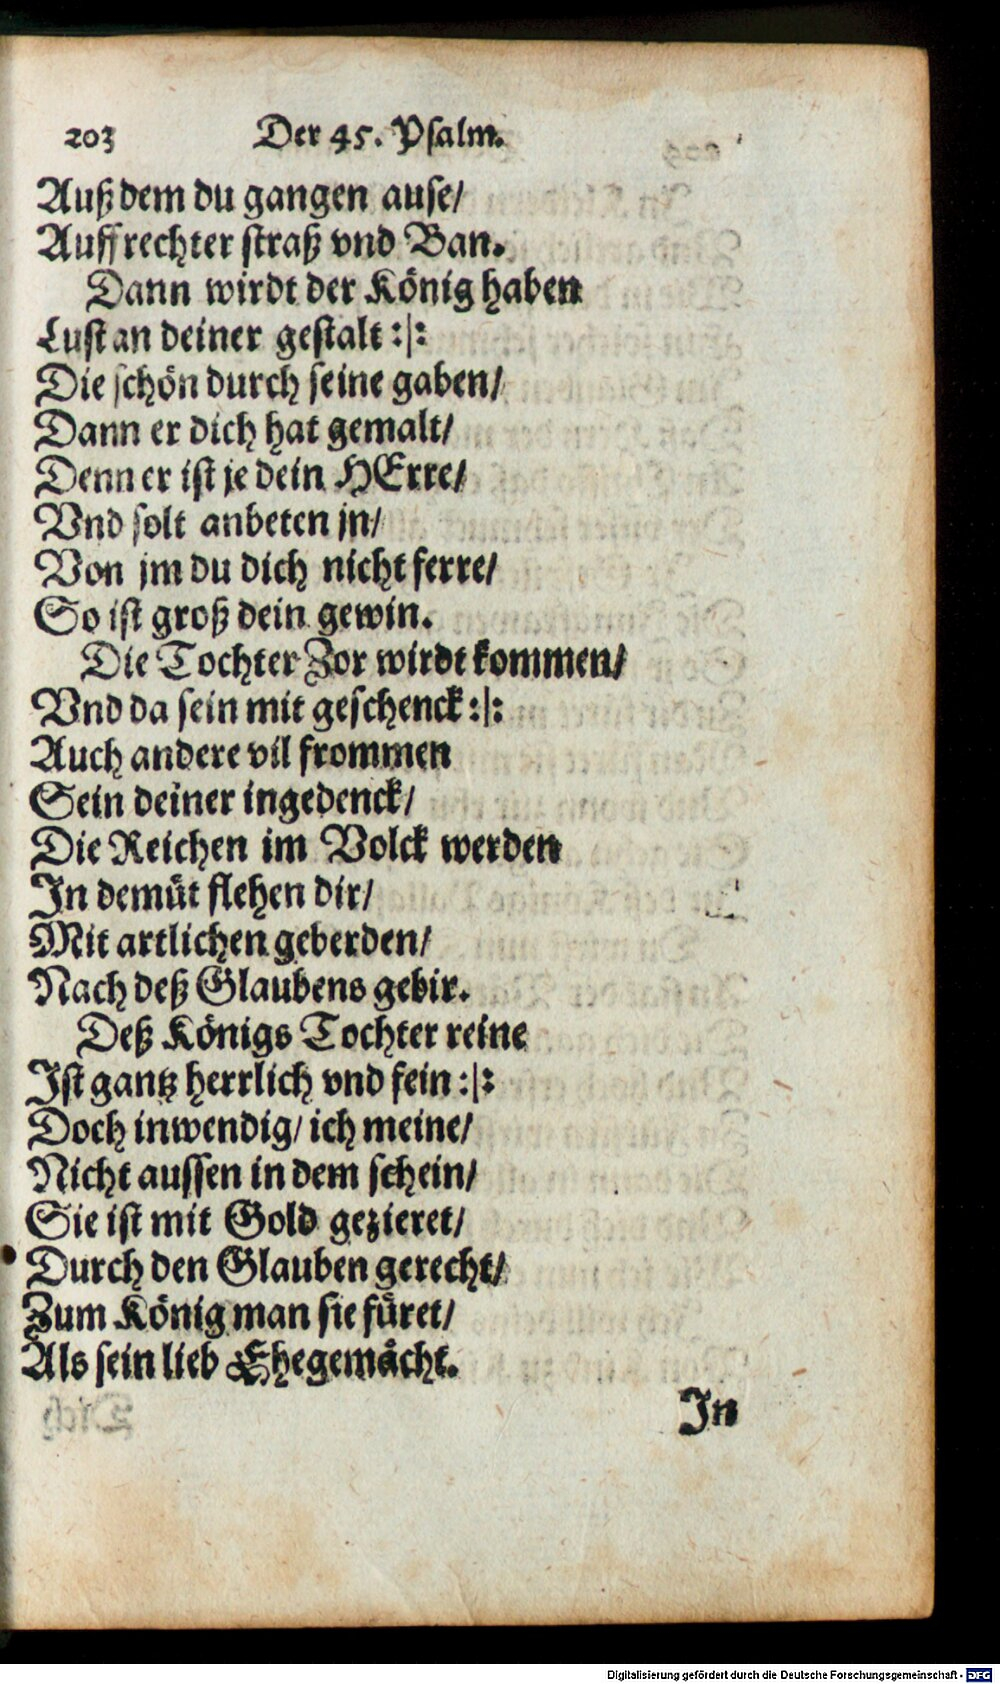 203 Der 45. Psalm.
Auß dem du gangen ause/
Auff rechter straß vnd Ban.
Dann wirdt der König haben
Lust an deiner gestalt :|:
Die schön durch seine gaben/
Dann er dich hat gemalt/
Denn er ist je dein HErre/
Vnd solt anbeten jn/
Von jm du dich nicht ferre/
So ist groß dein gewin.
Die Tochter Zor wirdt kommen/
Vnd da sein mit geschenck :|:
Auch andere vil frommen
Sein deiner ingedenck/
Die Reichen im Volck werden
In demüt flehen dir/
Mit artlichen geberden/
Nach deß Glaubens gebir.
Deß Königs Tochter reine
Ist gantz herrlich vnd fein :|:
Doch inwendig/ ich meine/
Nicht aussen in dem schein/
Sie ist mit Gold gezieret/
Durch den Glauben gerecht/
Zum König man sie füret/
Als sein lieb Ehegemächt.
In
Digitalisierung gefördert durch die Deutsche Forschungsgemeinschaft - DFG